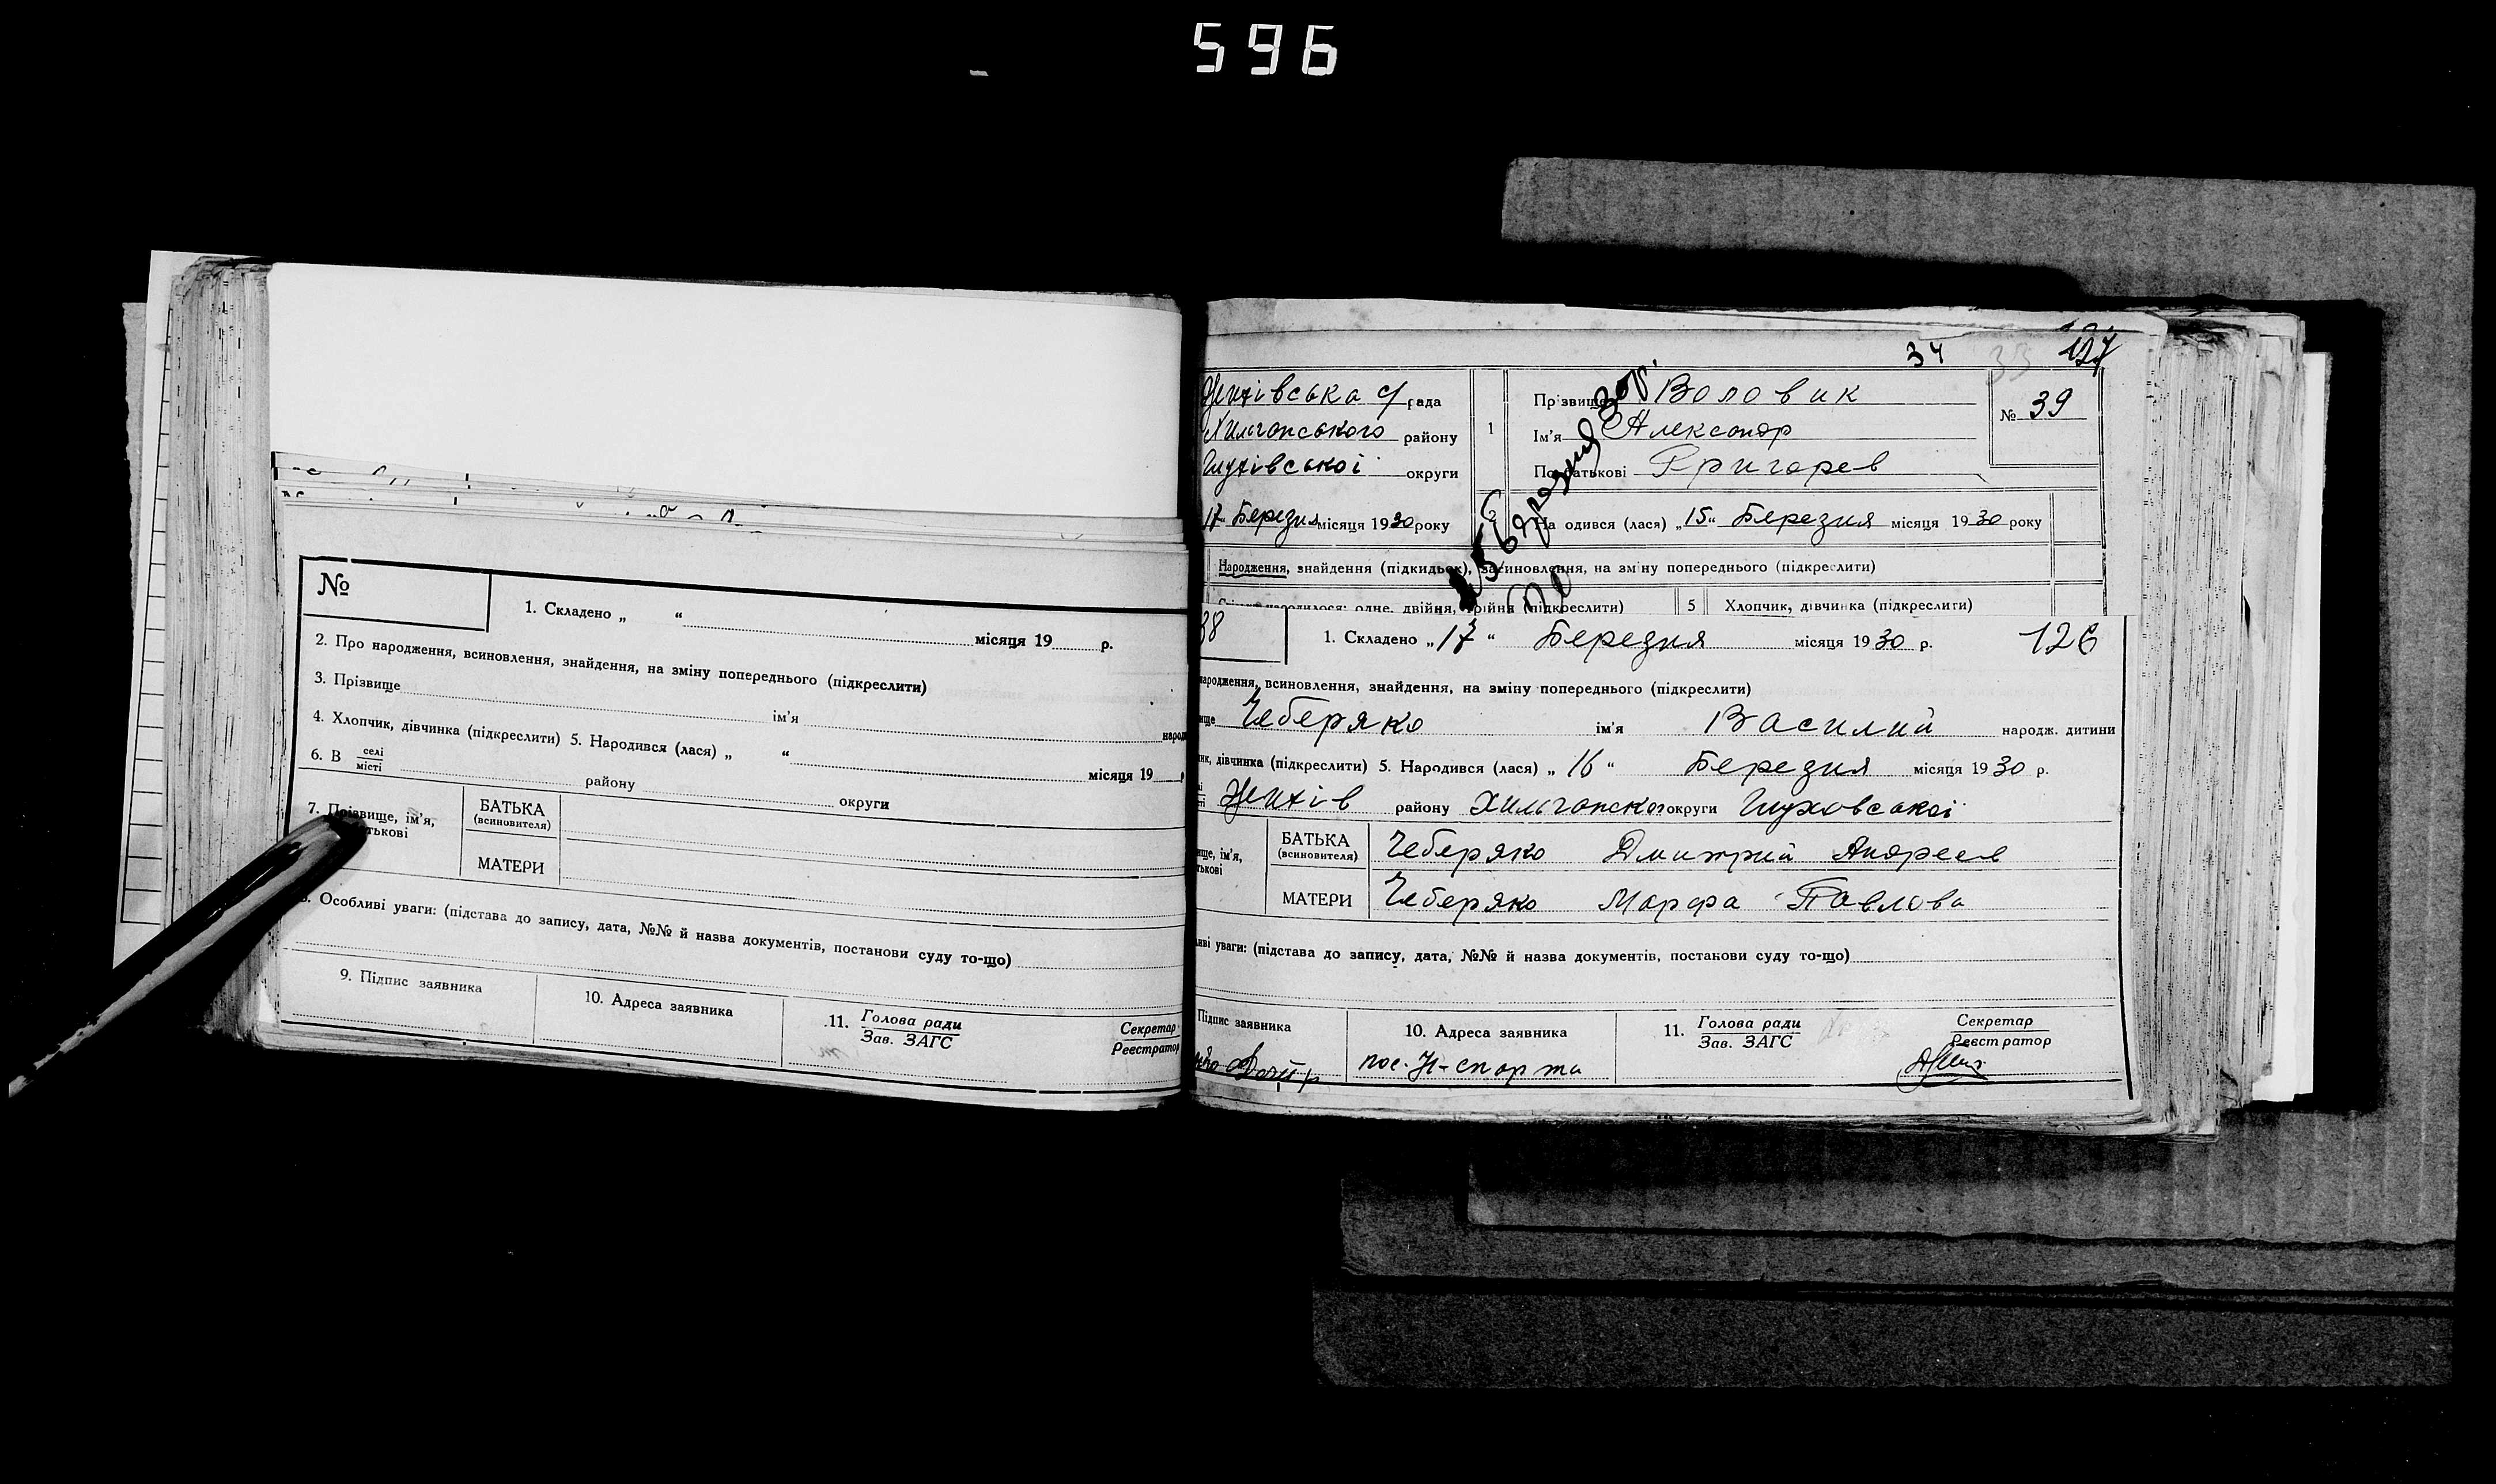 596
№
1. Складено „ “ місяця 19 р.
2. Про народження, всиновлення, знайдення, на зміну попереднього (підкреслити)
3. Прізвище ім'я народ
4. Хлопчик, дівчинка (підкреслити) 5. Народився (лася) „ “ місяця 19
6. В селі місті району округи
7. Прізвище, ім'я, тькові
БАТЬКА
(всиновителя)
МАТЕРИ
Особливі уваги: (підстава до запису, дата, №№ й назва документів, постанови суду то-що)
9. Підпис заявника
10. Адреса заявника
11. Голова ради
Зав. ЗАГС
Секретар
Реєстратор
34 33 127
рада
району
округи
17 Березня місяця 1930 року
1
Прізвище Воловик
Ім'я Александр
По батькові Григорев
№ 39
На одився (лася) „15“ Березня місяця 1930 року
Народження, знайдення (підкидьок), засиновлення, на зміну попереднього (підкреслити)
народилося: одне, двійня, трійня (підкреслити) 5 Хлопчик, дівчинка (підкреслити)
38
1. Складено „17“ Березня місяця 1930 р. 126
народження, всиновлення, знайдення, на зміну попереднього (підкреслити)
ище Чеберяко ім'я Василий народж. дитини
ик, дівчинка (підкреслити) 5. Народився (лася) „16“ Березня місяця 1930 р.
району округи Глуховської
ище, ім'я,
тькові
БАТЬКА
(всиновителя)
Чеберяко Дмитрий Андреев
МАТЕРИ
Чеберяко Марфа Павлова
иві уваги: (підстава до запису, дата, №№ й назва документів, постанови суду то-що)
Підпис заявника
10. Адреса заявника
11. Голова ради
Зав. ЗАГС
Секретар
Реєстратор